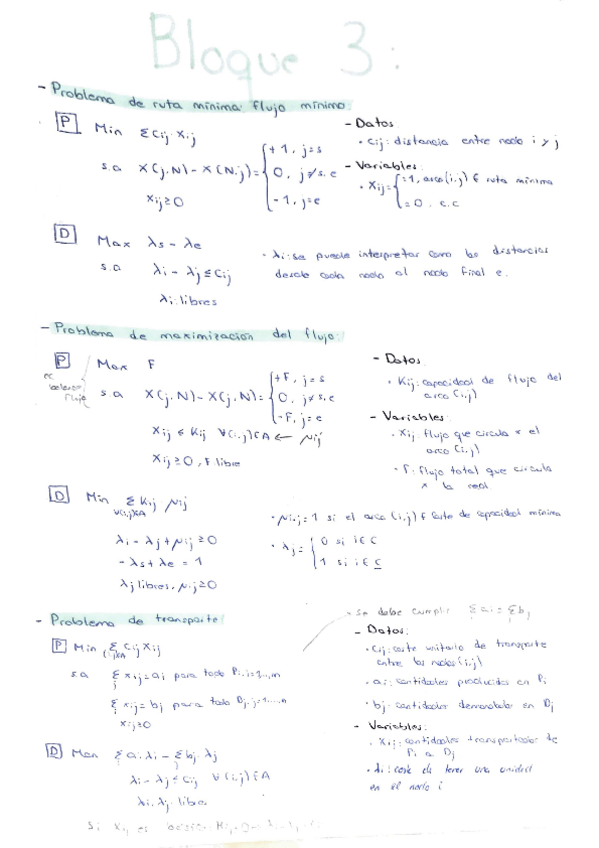 Bloque 3:
- Problema de ruta mínima: flujo mínimo:
P Min Σ Cij · Xij
s.a X(j,N) - X(N,j) = { +1, j=s
0, j≠s,e
-1, j=e
Xij ≥ 0
- Datos
· Cij: distancia entre nodo i y j
- Variables:
· Xij = { =1, arco(i,j) € ruta mínima
=0, c.c
D Max λs - λe
s.a λi - λj ≤ Cij
λi libres
· λi: se puede interpretar como las distancias
desde cada nodo al nodo final e.
- Problema de maximización del flujo:
P Max F
ec. balance flujo
s.a X(j,N) - X(j,N) = { +F, j=s
0, j≠s,e
-F, j=e
Xij ≤ Kij ∀(i,j)€A ← μij
Xij ≥ 0, F libre
- Datos
· Kij: capacidad de flujo del
arco (i,j)
- Variables:
· Xij: flujo que circula x el
arco (i,j)
· F: flujo total que circula
x la red.
D Min Σ Kij μij
∀(i,j)€A
λi - λj + μij ≥ 0
- λs + λe = 1
λj libres, μij ≥ 0
· μij = 1 si el arco (i,j) € corte de capacidad mínima
· λj = { 0 si i € C
1 si i € C
- Problema de transporte:
P Min Σ Cij Xij
(i,j)€A
s.a Σ xij = ai para todo Pi, i=1,...,m
j
Σ xij = bj para todo Dj, j=1,...,n
i
xij ≥ 0
· Se debe cumplir Σai = Σbj
- Datos:
· Cij: coste unitario de transporte
entre los nodos (i,j)
· ai: cantidades producidas en Pi
· bj: cantidades demandadas en Dj
- Variables:
· Xij: cantidades transportadas de
Pi a Dj
· λi: coste de tener una unidad
en el nodo i
D Max Σ ai λi - Σ bj λj
λi - λj ≤ Cij ∀(i,j)€A
λi, λj libre
Si Xij es